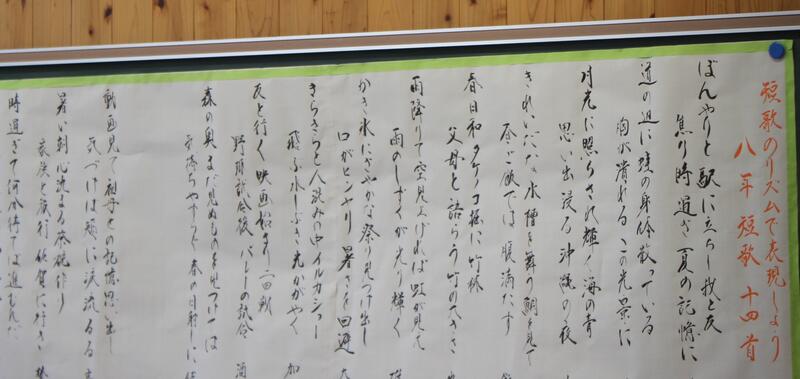 短歌のリズムで表現しよう
八年 短歌 十四首
ぼんやりと駅に立ちし我と友
焦り時過ぎ 夏の記憶に
道の辺に 蝉の身 散っている
胸が潰れる この光景に
月光に照らされ輝く海の青
思い出浸る 沖縄の夜
きれいだな 水槽を舞う鯛を見て
昼ご飯では 腹満たす
春日和 タケノコ掘に 竹林
父母と語らう 竹の大きさ
雨降りて空見上げれば虹が見えて
雨のしずくが光り輝く
かき氷にさやかな祭り見つけ出し
口がヒンヤリ 暑さを回避
きらきらと人混みの中イルカショー
飛ぶ水しぶき 光かがやく
友と行く 映画始まり 二回戦
野球試合後 バレーの試合
森の奥 まだ見ぬものを見つけては
春の日射しに
動画見て 祖母との記憶思い出し
気づけば頬に 涙流るる
暑い刺 心沈まる 茶碗作り
家族と旅行 佐賀に行き
時過ぎて 何分待てば進むんだ